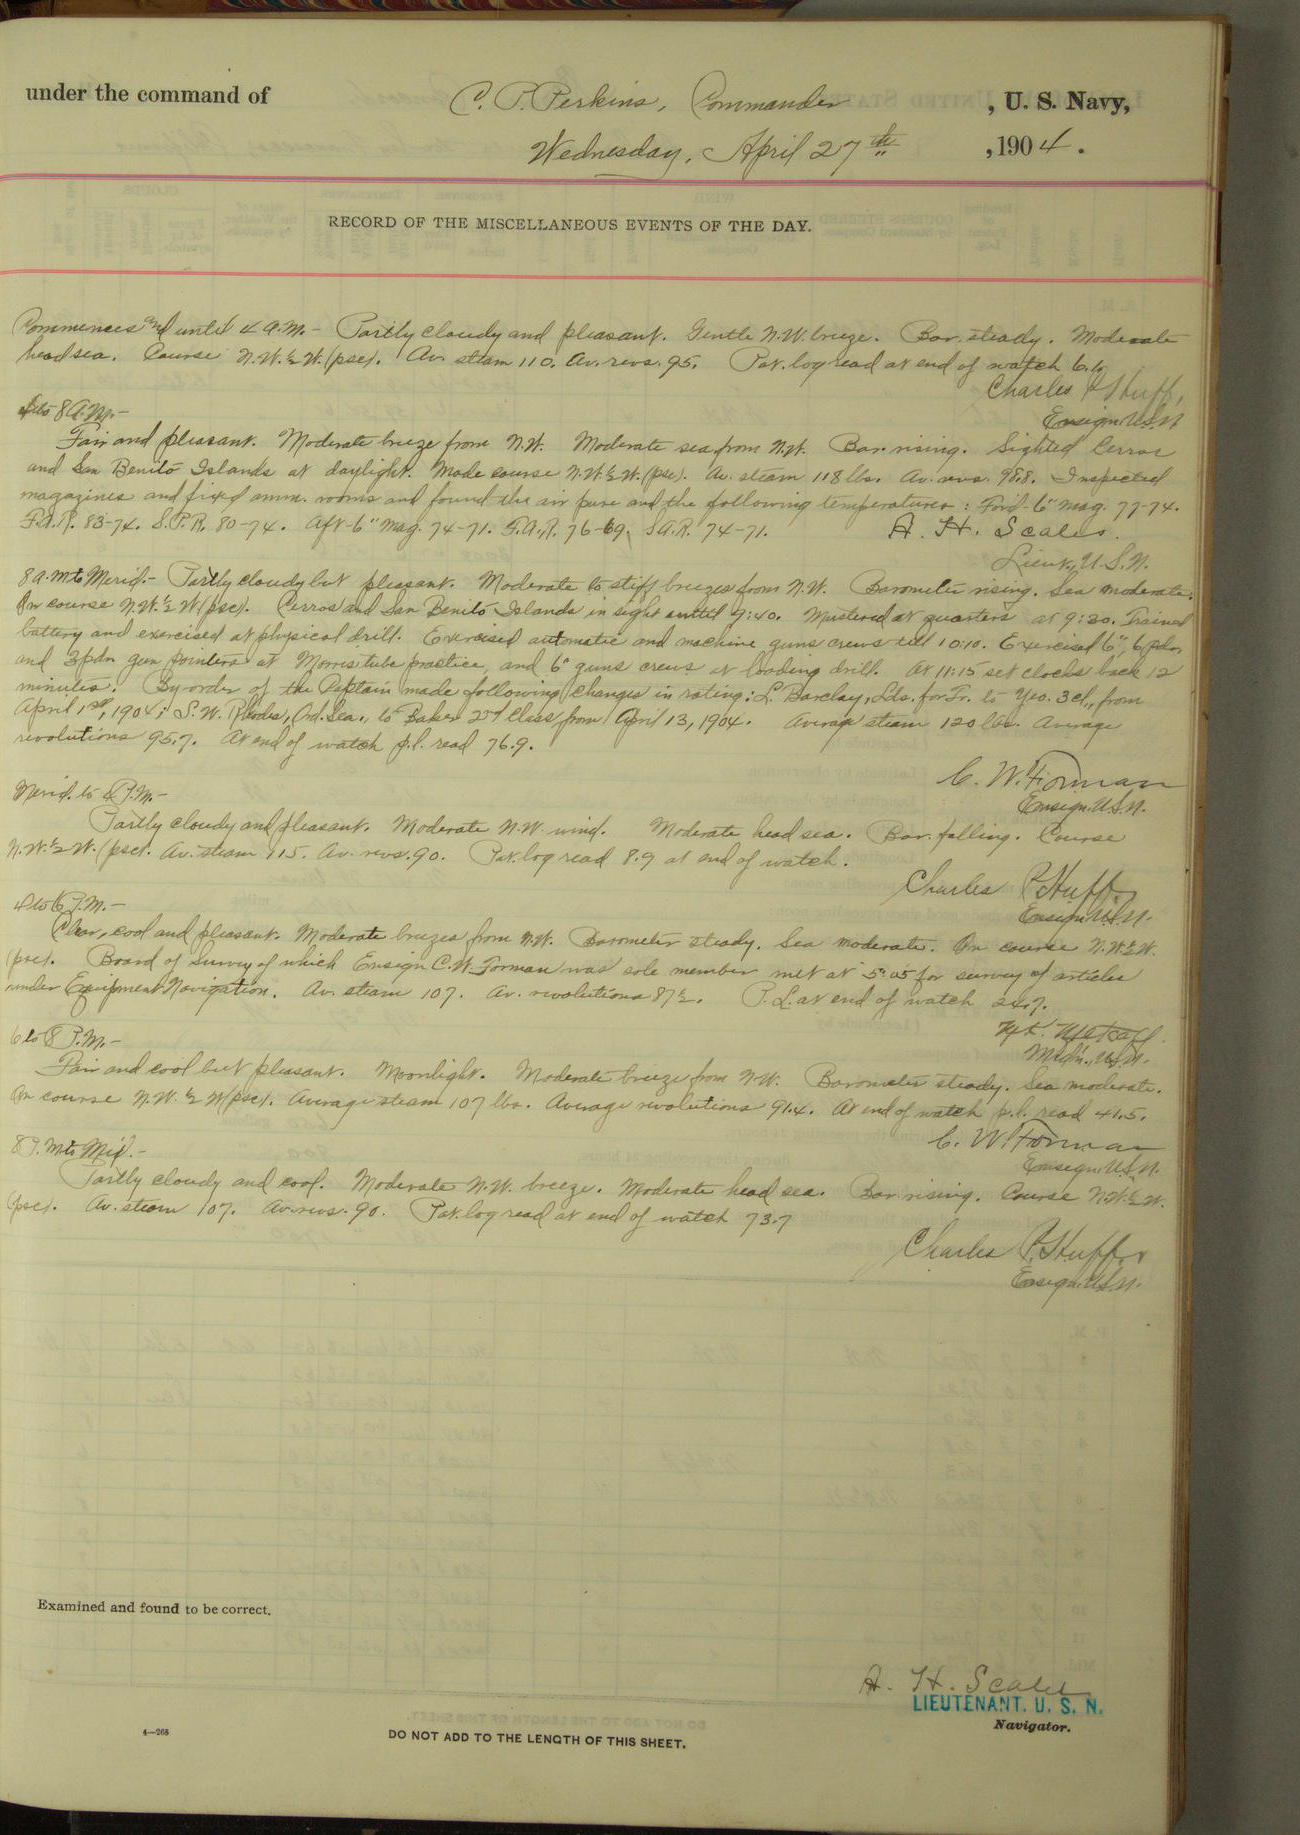 under the command of C. P. Perkins, Commander, U. S. Navy,
Wednesday, April 27th, 1904.
RECORD OF THE MISCELLANEOUS EVENTS OF THE DAY.
Commences and until 4 A.M.- Partly cloudy and pleasant. Gentle N.W. breeze. Bar. steady. Moderate
head sea. Course N.W.½W. (psc). Av. steam 110. Av. revs. 95. Pat. log read at end of watch
Charles P. Huff,
Ensign U.S.N
4 to 8 A.M.-
Fair and pleasant. Moderate breeze from N.W. Moderate sea from N.W. Bar. rising. Sighted Cerros
and San Benito Islands at daylight. Made course N.W.½W. (psc). Av. steam 118 lbs. Av. revs. 98.8. Inspected
magazines and fixed amm. rooms and found the air pure and the following temperatures: For'd 6" mag. 77-74.
F.A.R. 83-74. S.P.R. 80-74. Aft-6" mag. 74-71. F.A.R. 76-69. S.A.R. 74-71.
A. H. Scales.
Lieut., U.S.N.
8 A.M. to Merid.- Partly cloudy but pleasant. Moderate to stiff breezes from N.W. Barometer rising. Sea moderate.
On course N.W.½W. (psc). Cerros and San Benito Islands in sight until 9:40. Mustered at quarters at 9:30. Trained
battery and exercised at physical drill. Exercised automatic and machine guns crews till 10:10. Exercised 6", 6 pdr.
and 3 pdr. gun pointers at Morris tube practice, and 6" guns crews at loading drill. At 11:15 set clocks back 12
minutes. By order of the Captain made following changes in rating: L. Barclay, Lds. for Tr. to Yeo. 3 cl., from
April 1st, 1904; S. W. Rhodes, Ord. Sea., to Baker 2nd Class from April 13, 1904. Average steam 120 lbs. Average
revolutions 95.7. At end of watch p.l. read 76.9.
C. W. Forman
Ensign. U.S.N.
Merid. to 4 P.M.-
Partly cloudy and pleasant. Moderate N.W. wind. Moderate head sea. Bar. falling. Course
N.W.½W. (psc). Av. steam 115. Av. revs. 90. Pat. log read 8.9 at end of watch.
Charles P. Huff.
Ensign U.S.N.
4 to 6 P.M.-
Clear, cool and pleasant. Moderate breezes from N.W. Barometer steady. Sea moderate. On course N.W.½W.
(psc). Board of Survey of which Ensign C. W. Forman was sole member met at 5:05 for survey of articles
under Equipment Navigation. Av. steam 107. Av. revolutions 87½. P.L. at end of watch 24.7.
Midn., U.S.N.
6 to 8 P.M.-
Fair and cool but pleasant. Moonlight. Moderate breeze from N.W. Barometer steady. Sea moderate.
On course N.W.½W (psc). Average steam 107 lbs. Average revolutions 91.4. At end of watch p.l. read 41.5.
C. W. Forman
Ensign. U.S.N.
8 P.M. to Mid.-
Partly cloudy and cool. Moderate N.W. breeze. Moderate head sea. Bar. rising. Course N.W.½W.
(psc). Av. steam 107. Av. revs. 90. Pat. log read at end of watch 73.7
Charles P. Huff.
Ensign. U.S.N.
Examined and found to be correct.
A. H. Scales
LIEUTENANT. U. S. N.
Navigator.
4—268
DO NOT ADD TO THE LENGTH OF THIS SHEET.